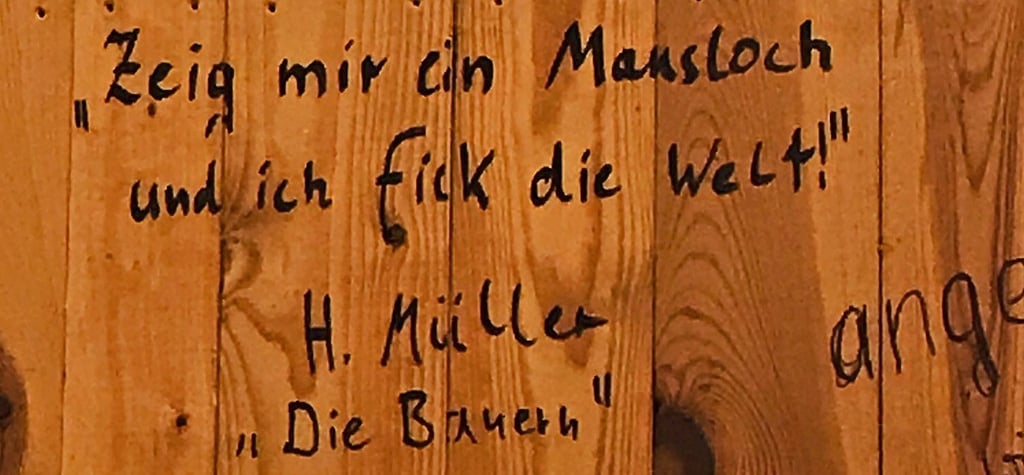 „Zeig mir ein Mausloch
und ich fick die Welt!"
H. Müller
„Die Bauern"
ange